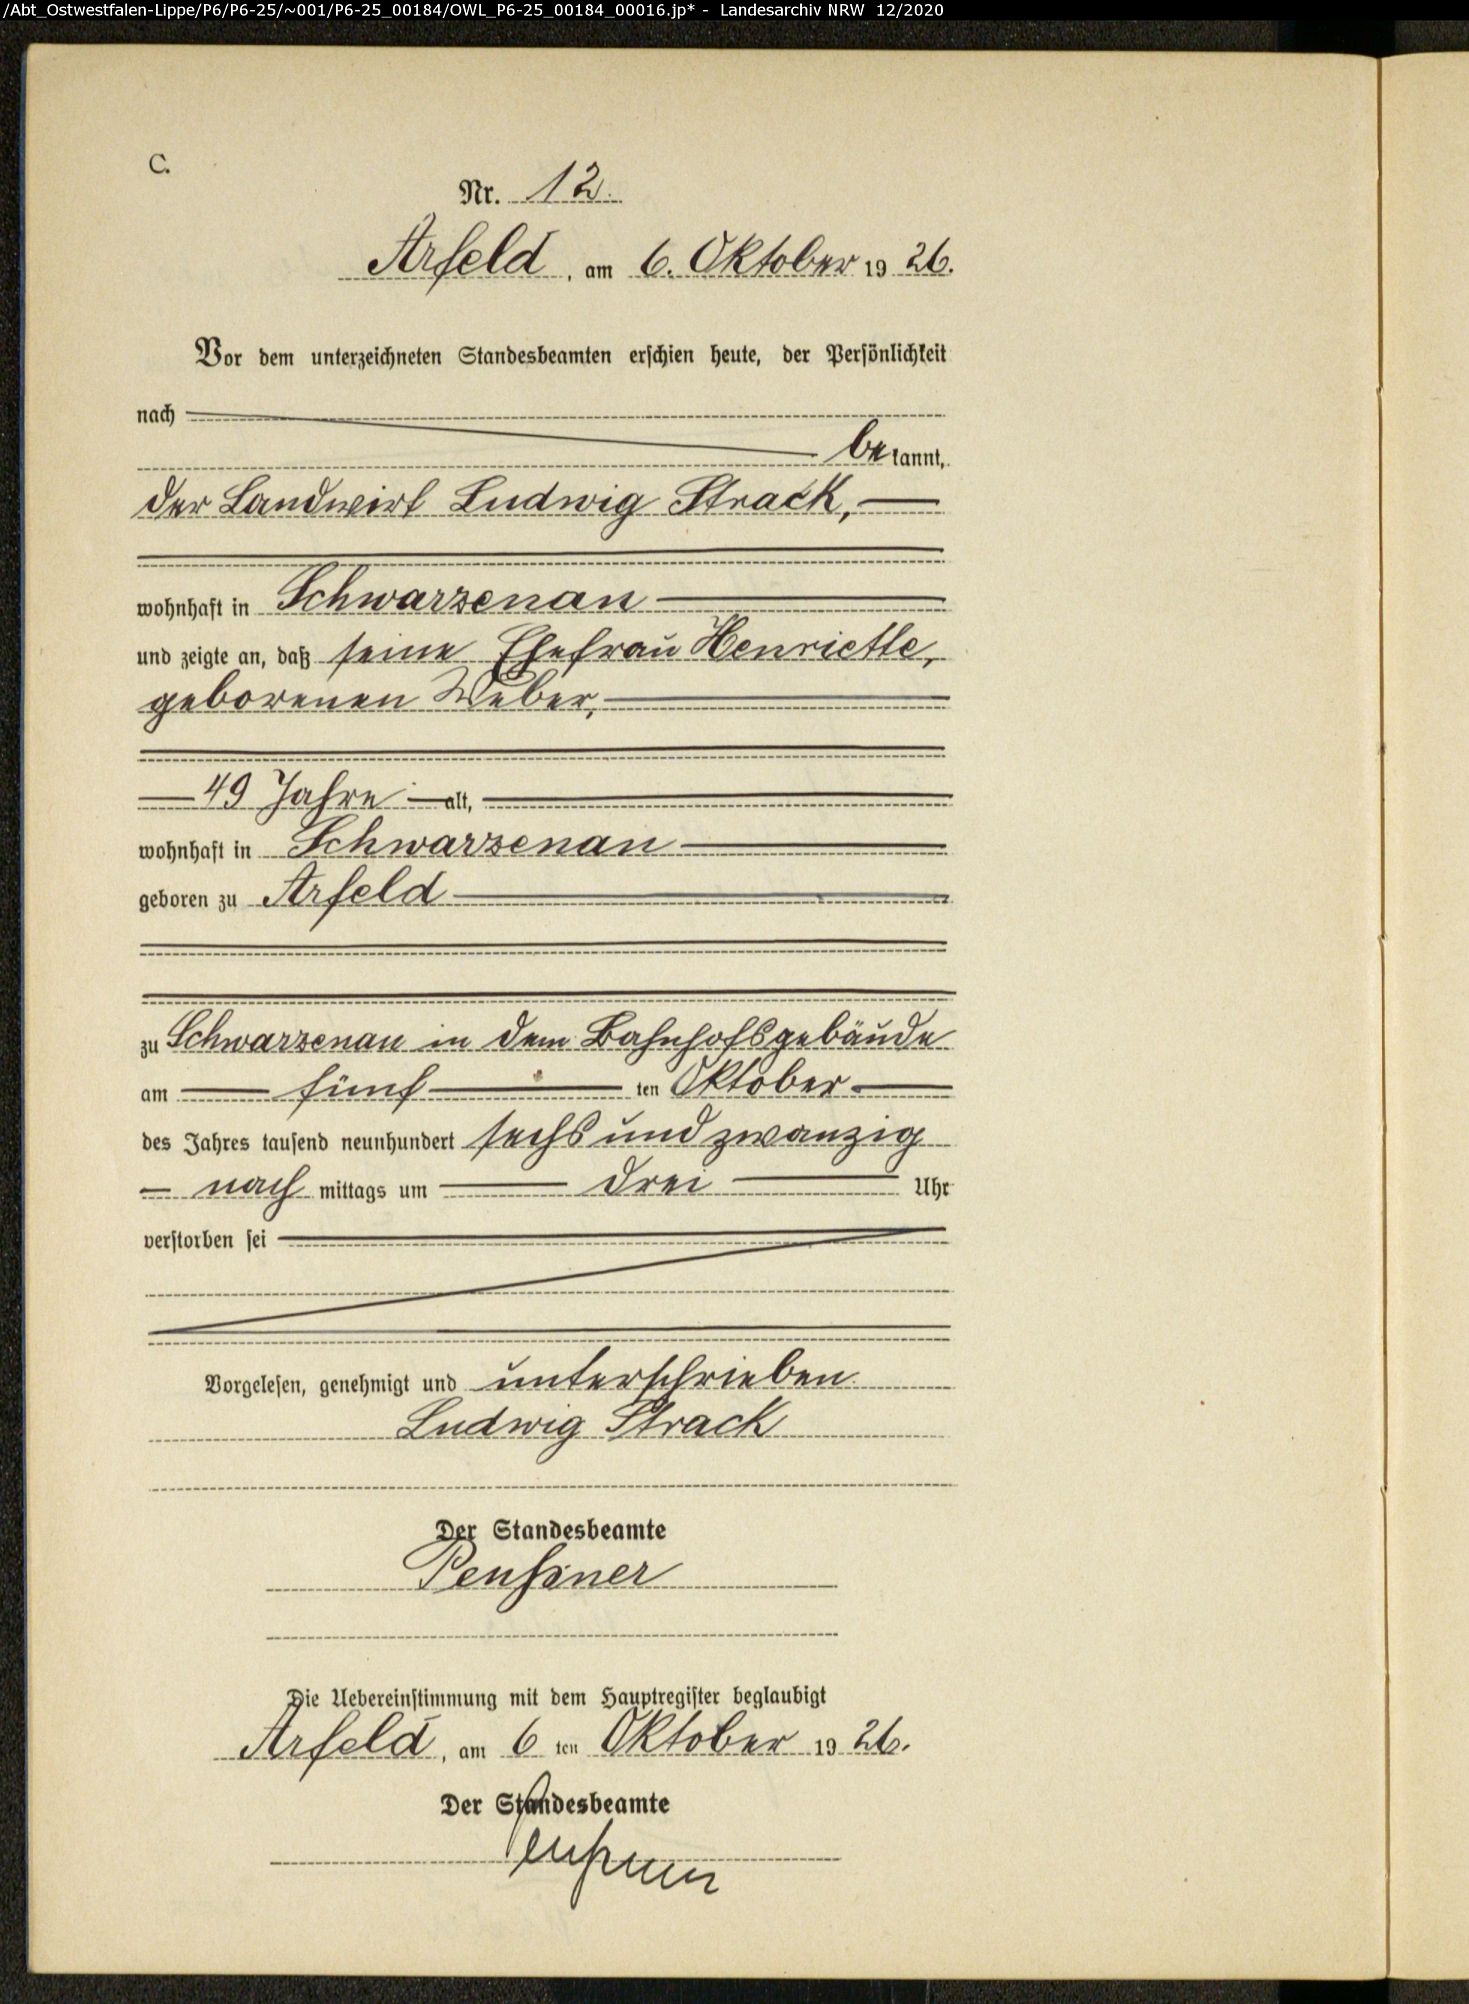 /Abt_Ostwestfalen-Lippe/P6/P6-25/~001/P6-25_00184/OWL_P6-25_00184_00016.jp* - Landesarchiv NRW 12/2020
C.
Nr. 12.
Arfeld, am 6. Oktober 19 26.
Vor dem unterzeichneten Standesbeamten erschien heute, der Persönlichkeit
nach
bekannt,
der Landwirt Ludwig Strack,
wohnhaft in Schwarzenau
und zeigte an, daß seine Ehefrau Henriette,
geborenen Weber,
49 Jahre alt,
wohnhaft in Schwarzenau
geboren zu Arfeld
zu Schwarzenau in dem Bahnhofsgebäude
am fünf ten Oktober
des Jahres tausend neunhundert sechs und zwanzig
nach mittags um drei Uhr
verstorben sei
Vorgelesen, genehmigt und unterschrieben
Ludwig Strack
Der Standesbeamte
Die Uebereinstimmung mit dem Hauptregister beglaubigt
Arfeld, am 6 ten Oktober 19 26.
Der Standesbeamte